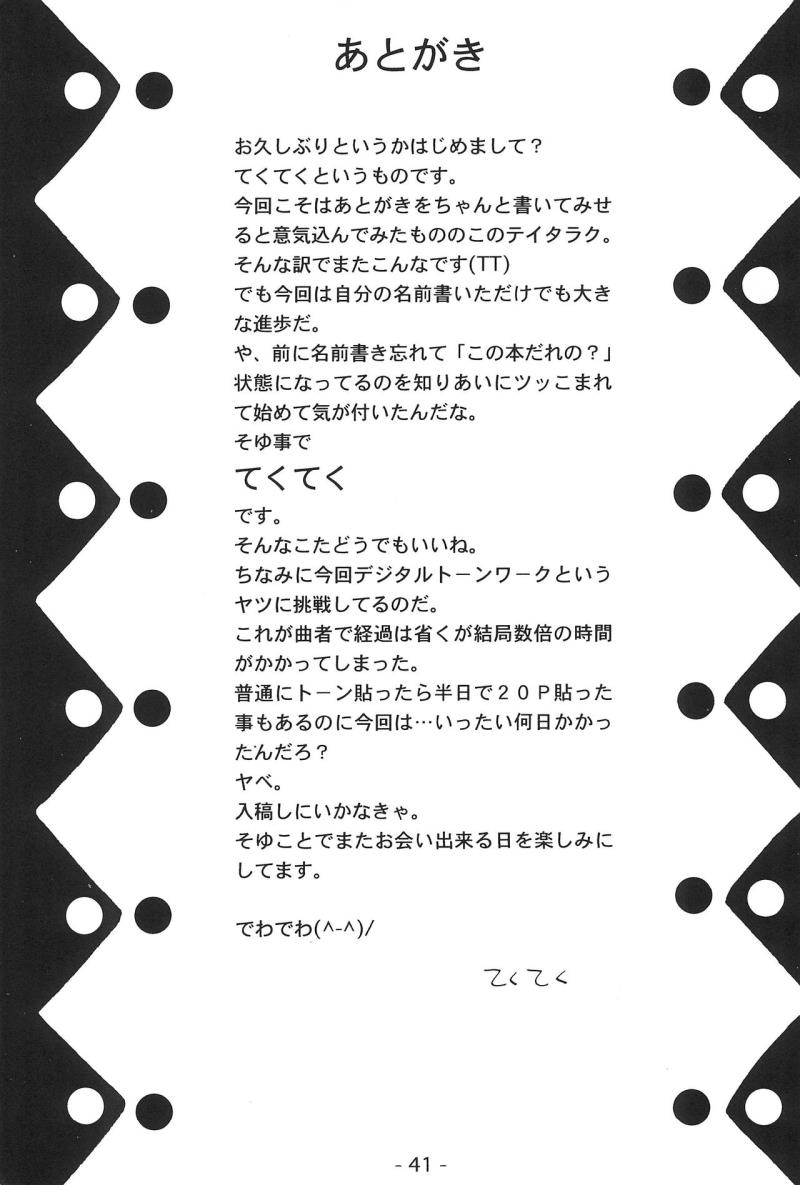 あとがき
お久しぶりというかはじめまして？
てくてくというものです。
今回こそはあとがきをちゃんと書いてみせ
ると意気込んでみたもののこのテイタラク。
そんな訳でまたこんなです(TT)
でも今回は自分の名前書いただけでも大き
な進歩だ。
や、前に名前書き忘れて「この本だれの？」
状態になってるのを知りあいにツッこまれ
て始めて気が付いたんだな。
そゆ事で
てくてく
です。
そんなこたどうでもいいね。
ちなみに今回デジタルトーンワークという
ヤツに挑戦してるのだ。
これが曲者で経過は省くが結局数倍の時間
がかかってしまった。
普通にトーン貼ったら半日で２０Ｐ貼った
事もあるのに今回は…いったい何日かかっ
たんだろ？
ヤベ。
入稿しにいかなきゃ。
そゆことでまたお会い出来る日を楽しみに
してます。
でわでわ(^-^)/
てくてく
- 41 -